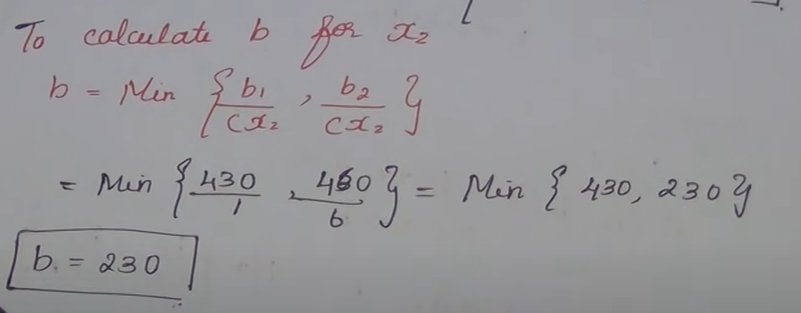 To calculate b for x₂
b = Min { b₁/Cx₂ , b₂/Cx₂ }
= Min { 430/1 , 460/6 } = Min { 430, 230 }
b. = 230